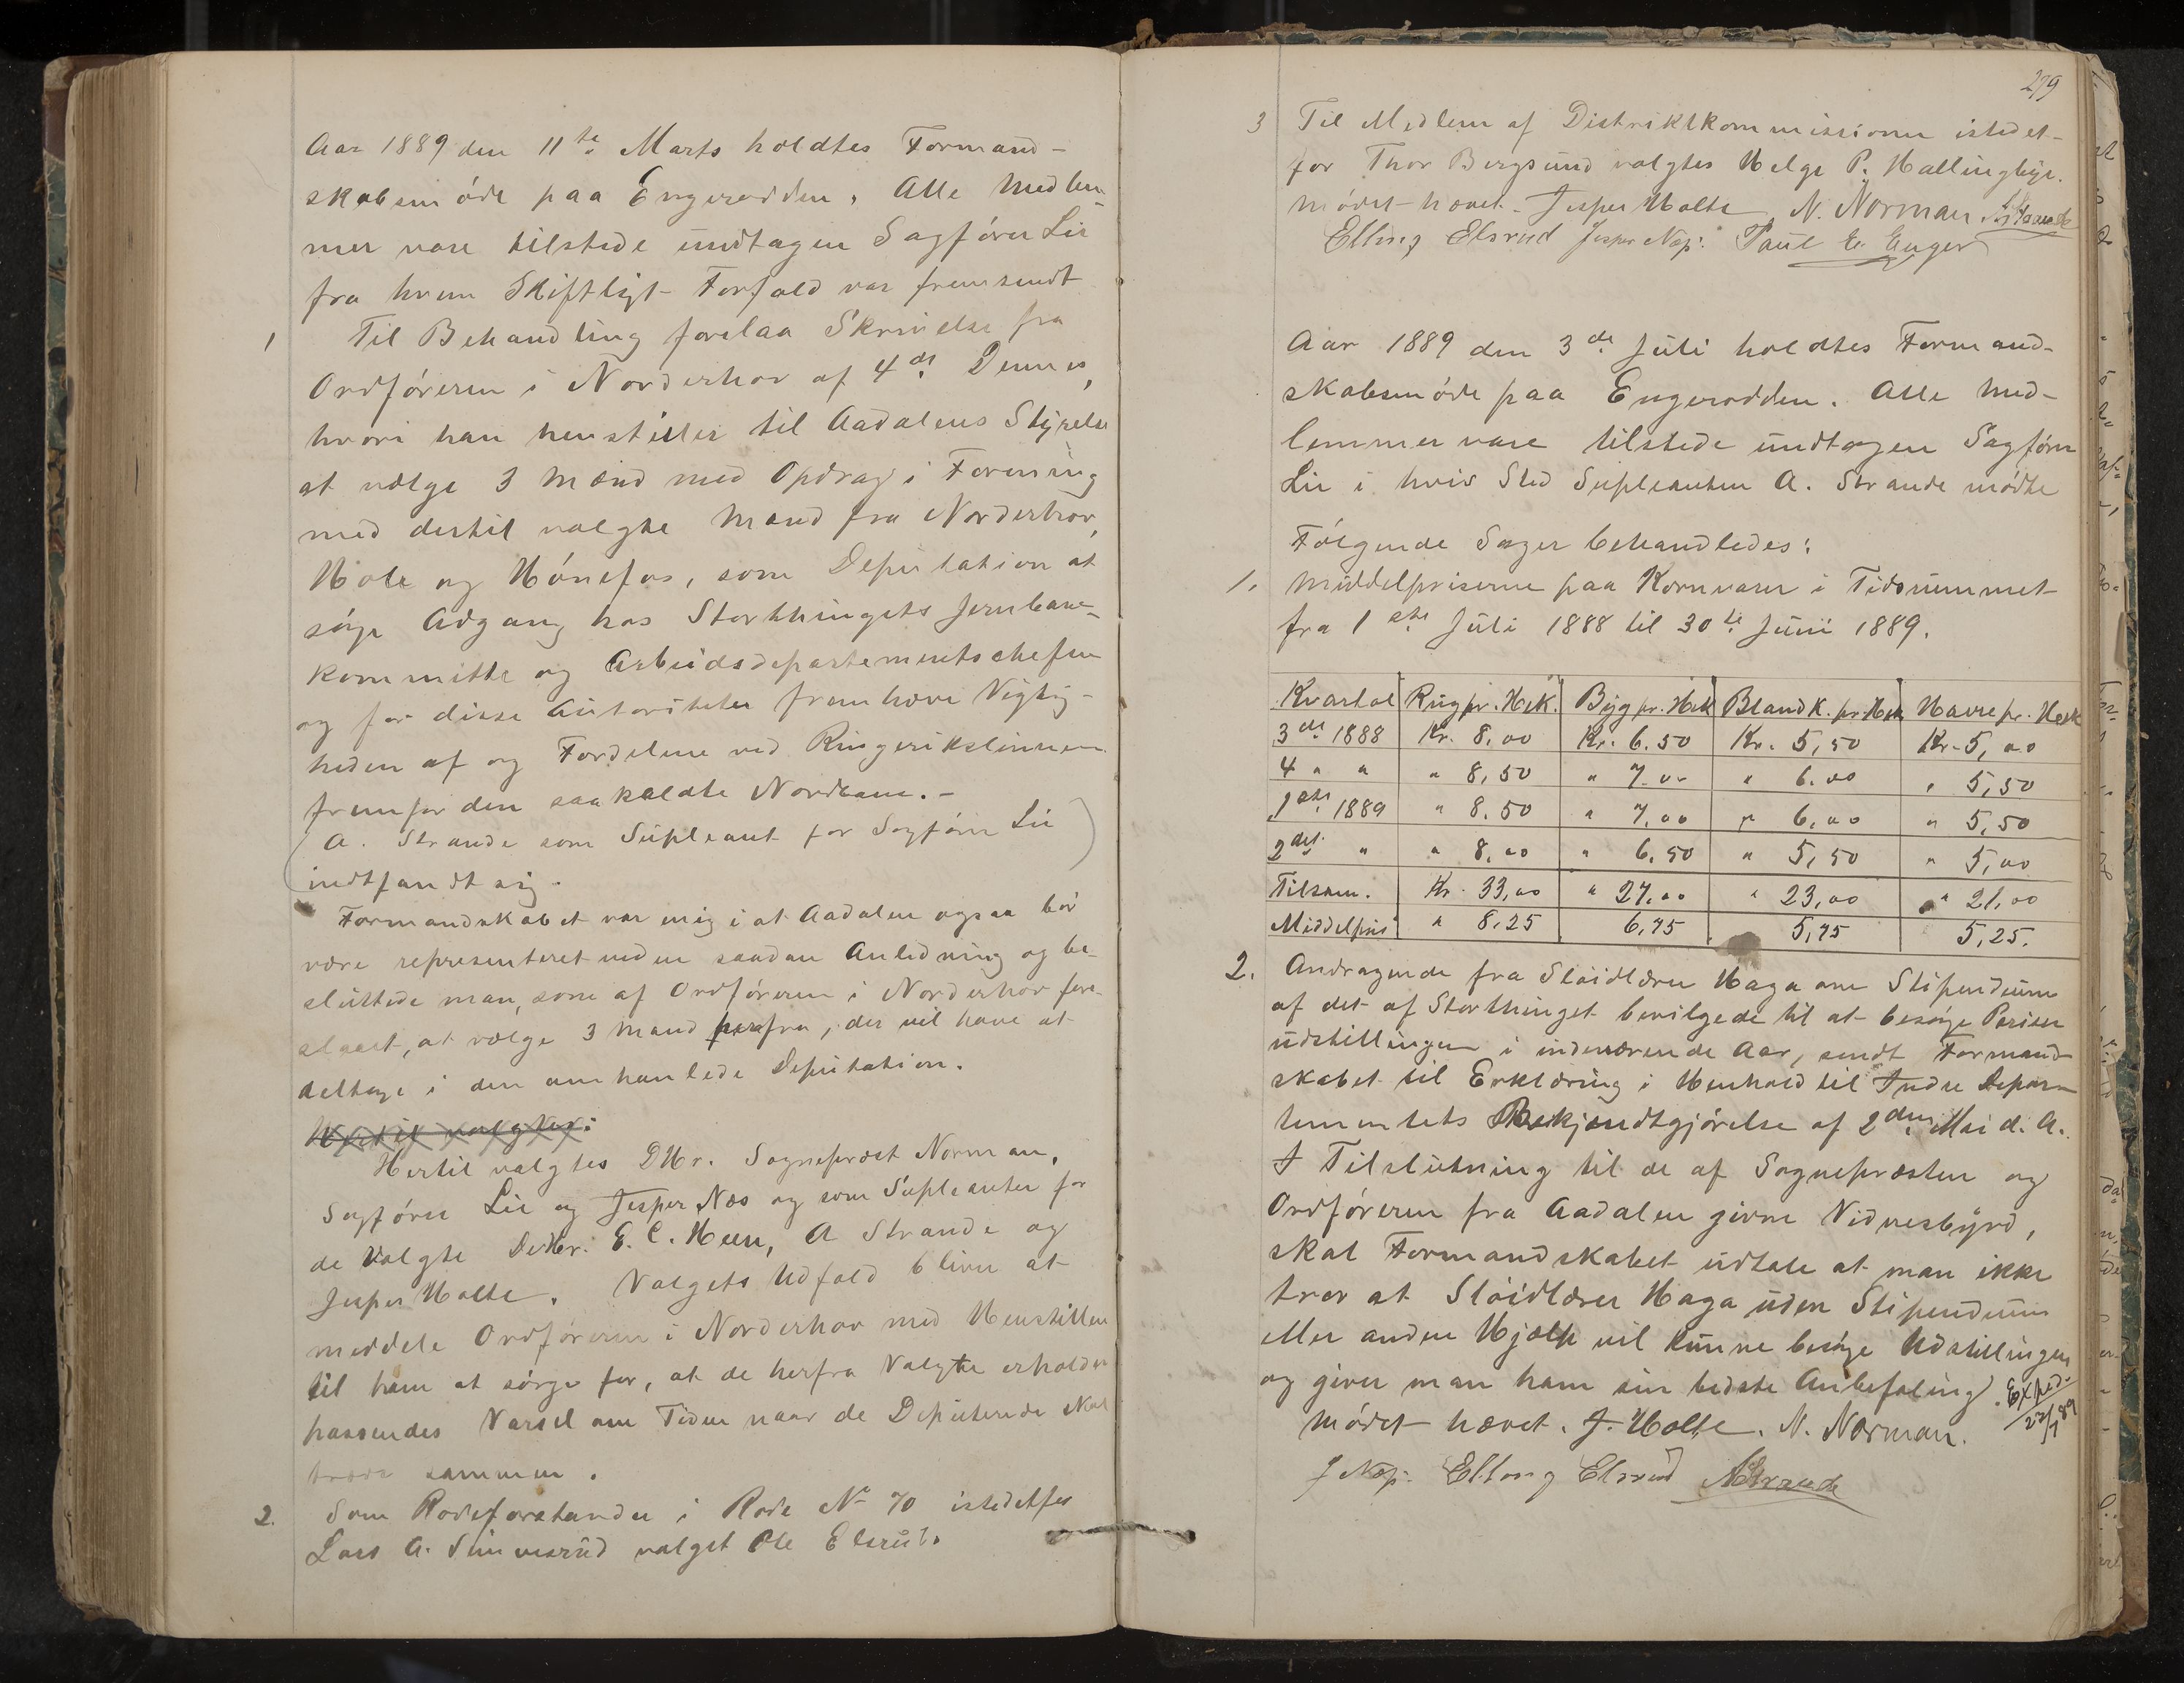 Aar 1889 den 11te Marts holdtes Formand-
skabsmöde paa Engerodden. Alle Medlem-
mer vare tilstede undtagen Sagförer Lie
fra hvem Skiftligt Forfald var fremsendt
1 Til Behandling forelaa Skrivelse fra
Ordföreren i Norderhov af 4de Dennes,
hvori han henstiller til Aadalens Styrelse
at vælge 3 Mænd med Opdrag i Forening
med dertil valgte Mænd fra Norderhov,
Hole og Hönefos, som Deputation at
söge Adgang hos Storthingets Jernbane-
kommitte og Arbeidsdepartementschefen
og for disse Autoriteter fremhæve Vigtig-
heden af og Fordelene ved Ringerikslinien
fremfor den saakaldte Nordbane. -
(A. Strande som Supleant for Sagförer Lie
indfandt sig.)
Formandskabet var enig i at Aadalen ogsaa bör
være representeret ved en saadan Anledning og be-
sluttede man, som af Ordföreren i Norderhov fore-
slaaet, at vælge 3 Mand herfra, der vil have at
deltage i den omhanlede Deputation.
Hertil valgtes:
Hertil valgtes DHr. Sognepræst Norman,
Sagförer Lie og Jesper Næs og som Supleanter for
de Valgte DeHr. E. C. Heen, A Strande og
Jesper Holte. Valgets Udfald bliver at
meddele Ordföreren i Norderhov med Henstillen
til ham at sörge for, at de herfra Valgte erholder
passendes Varsel om Tiden naar de Deputerede skal
træde sammen.
2. Som Rodeforstander i Rode No 70 istedetfor
Lars A. Simensrud valgst Ole Elsrud.
279
3 Til Medlem af Distriktkommissionen istedet-
for Thor Bergsund valgtes Helge P. Hallingbye.
Mödet hævet. Jesper Holte N. Norman AStrande
Elling Elsrud Jesper Næs. Paul E. Enger
Aar 1889 den 3de Juli holdtes Formand-
skabsmöde paa Engerodden. Alle Med-
lemmer vare tilstede undtagen Sagförer
Lie i hvis Sted Supleanten A. Strande mödte
Fölgende Sager behandledes:
1. Middelpriserne paa Kornvarer i Tidsrummet
fra 1ste Juli 1888 til 30te Juni 1889.
Kvartal Rug pr. Hek. Byg pr. Hek Bland K. pr Hek Havre pr. Hek
3de 1888 Kr. 8,00 Kr. 6.50 Kr. 5,50 Kr. 5,00
4 " " " 8,50 " 7.00 " 6.00 " 5,50
1ste 1889 " 8.50 " 7,00 " 6,00 " 5,50
2det " " 8,00 " 6,50 " 5,50 " 5,00
Tilsam. Kr. 33,00 " 27,00 " 23,00 " 21,00
Middelpris " 8,25 6,75 5,75 5,25.
2. Andragende fra Slöidlærer Haga om Stipendium
af det af Storthinget bevilgede til at besöge Pariser
udstillingen i indeværende Aar, sendt Formand-
skabet til Erklæring i Henhold til Indre Depar-
tementets Bekjendtgjörelse af 2den Mai d. A.
I Tilslutning til de af Sognepræsten og
Ordföreren fra Aadalen givne Vidnesbyrd,
skal Formandskabet udtale at man ikke
tror at Slöidlærer Haga uden Stipendium
eller anden Hjælp vil kunne besöge Udstillingen
og giver man ham sin bedste Anbefaling. Exped.
Mödet hævet. J. Holte. N. Norman. 23/7 89
J Næs. Elling Elsrud AStrande